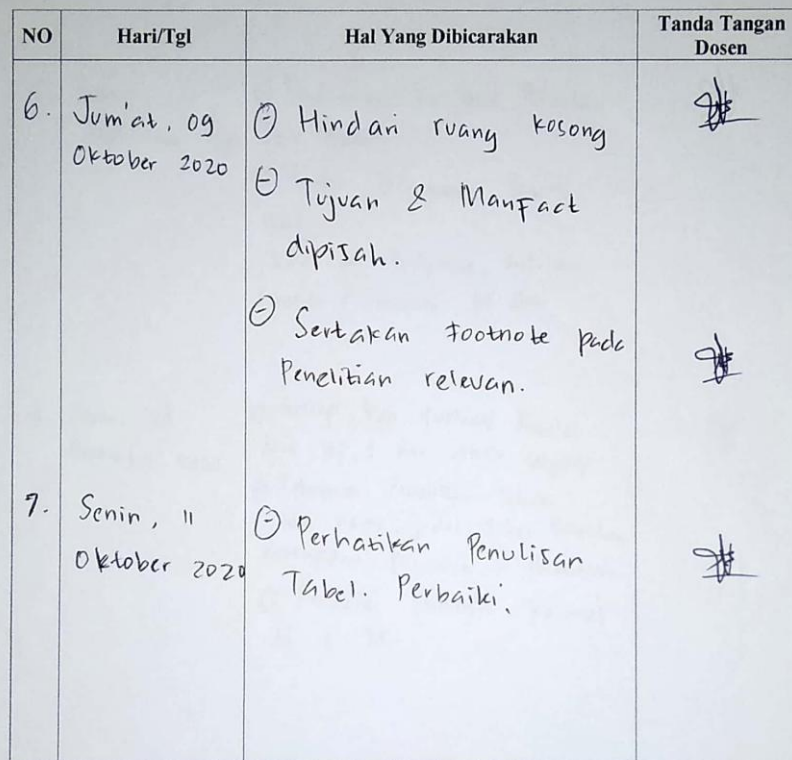 NO Hari/Tgl Hal Yang Dibicarakan Tanda Tangan Dosen
6. Jum'at, 09 Oktober 2020
⊖ Hindari ruang kosong
⊖ Tujuan & Manfaat
dipisah.
⊖ Sertakan Footnote pada
Penelitian relevan.
7. Senin, 11 Oktober 2020
⊖ Perhatikan Penulisan
Tabel. Perbaiki.